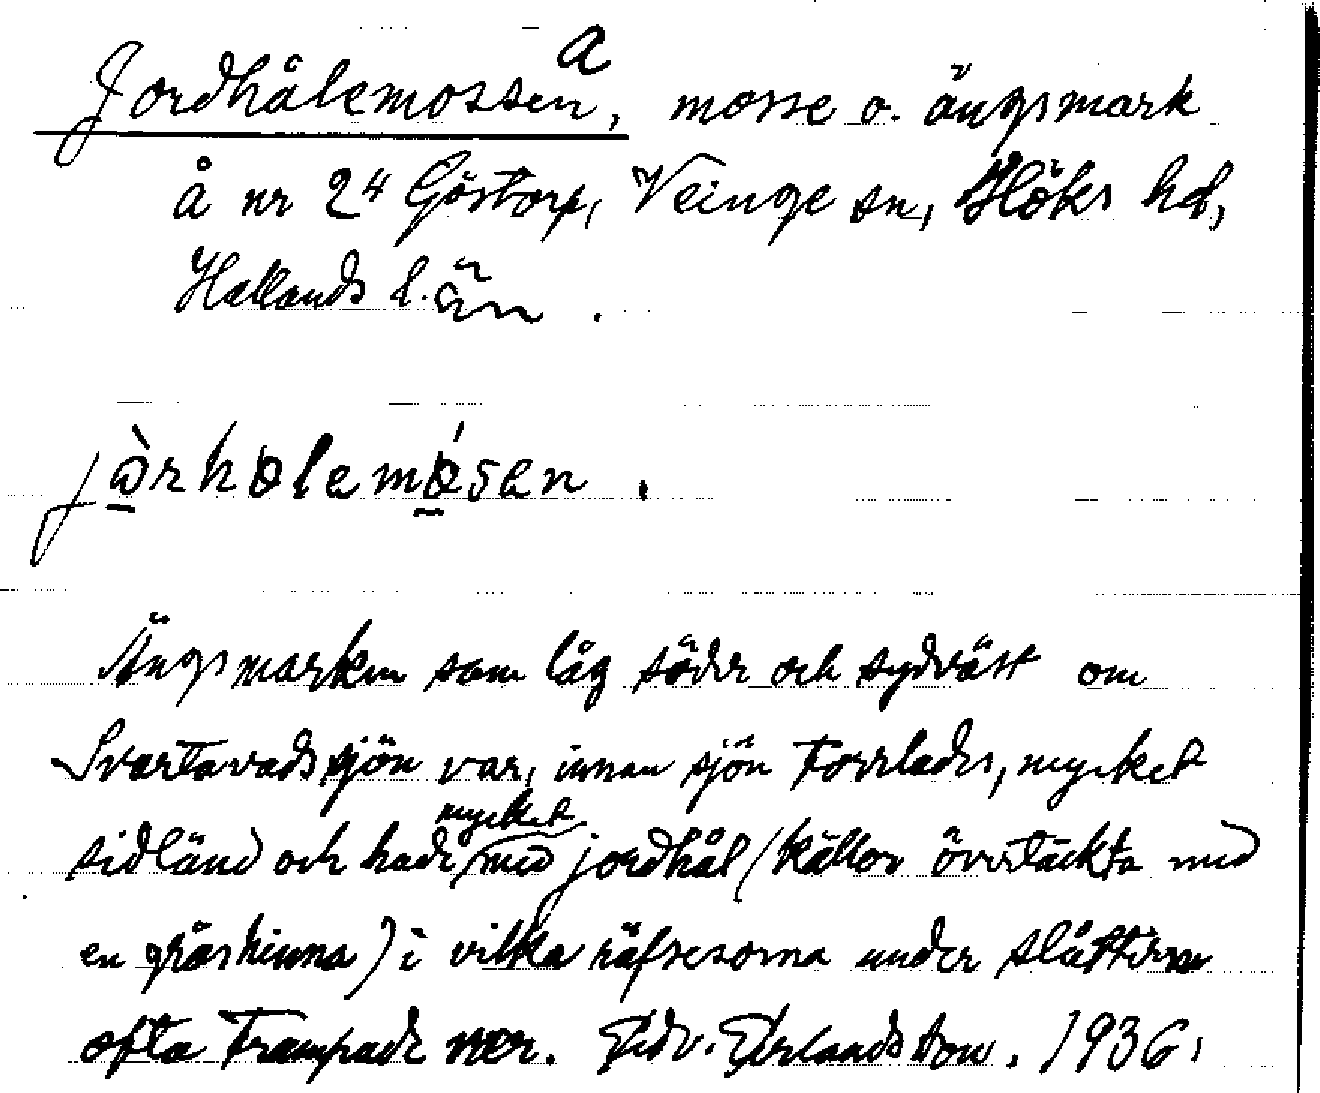 a
Jordhålemossen, mosse o. ängsmark
å nr 24 Göstorp, Veinge sn, Höks hd,
Hallands l. än.
jòrholemósen.
Ängsmarken som låg söder och sydväst om
Svartavadssjön var, innan sjön torrlades, mycket
sidländ och hade mycket med jordhål (källor övertäckta med
en gräshinna) i vilka räfsesorna under slåttern
ofta trampade ner. Edv. Erlandsson. 1936.